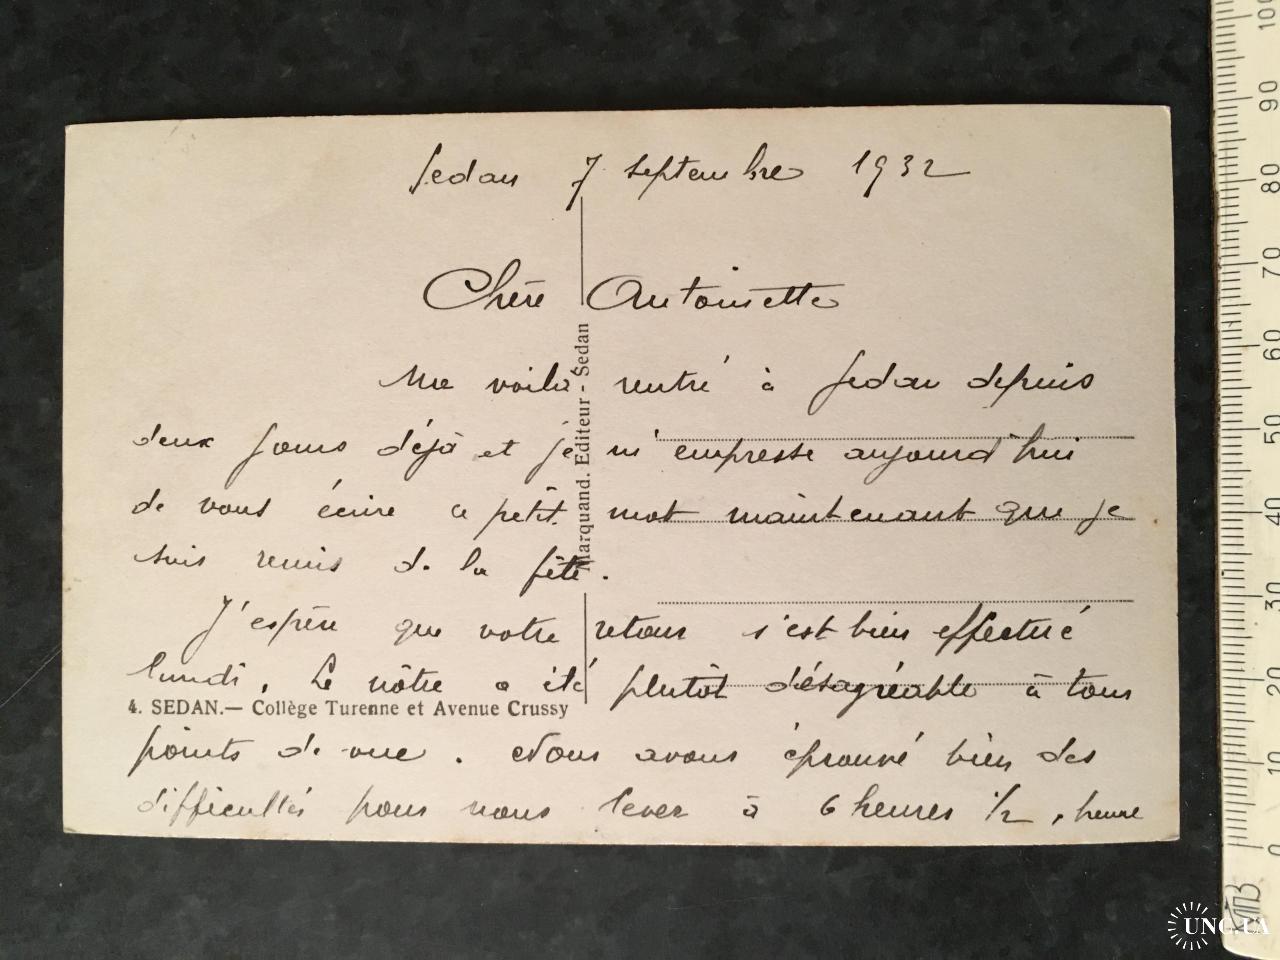 Sedan 7 septembre 1932
Chère Antoinette
Me voilà rentré à Sedan depuis
deux jours déjà et je m'empresse aujourd'hui
de vous écrire ce petit mot maintenant que je
suis remis de la fête.
J'espère que votre retour s'est bien effectué
lundi. Le nôtre a été plutôt désagréable à tous
4. SEDAN.— Collège Turenne et Avenue Crussy
points de vue. Nous avons éprouvé bien des
difficultés pour nous lever à 6 heures 1/2, heure
Marquand. Editeur - Sedan
100
90
80
70
60
50
40
30
20
10
0
UNC.UA